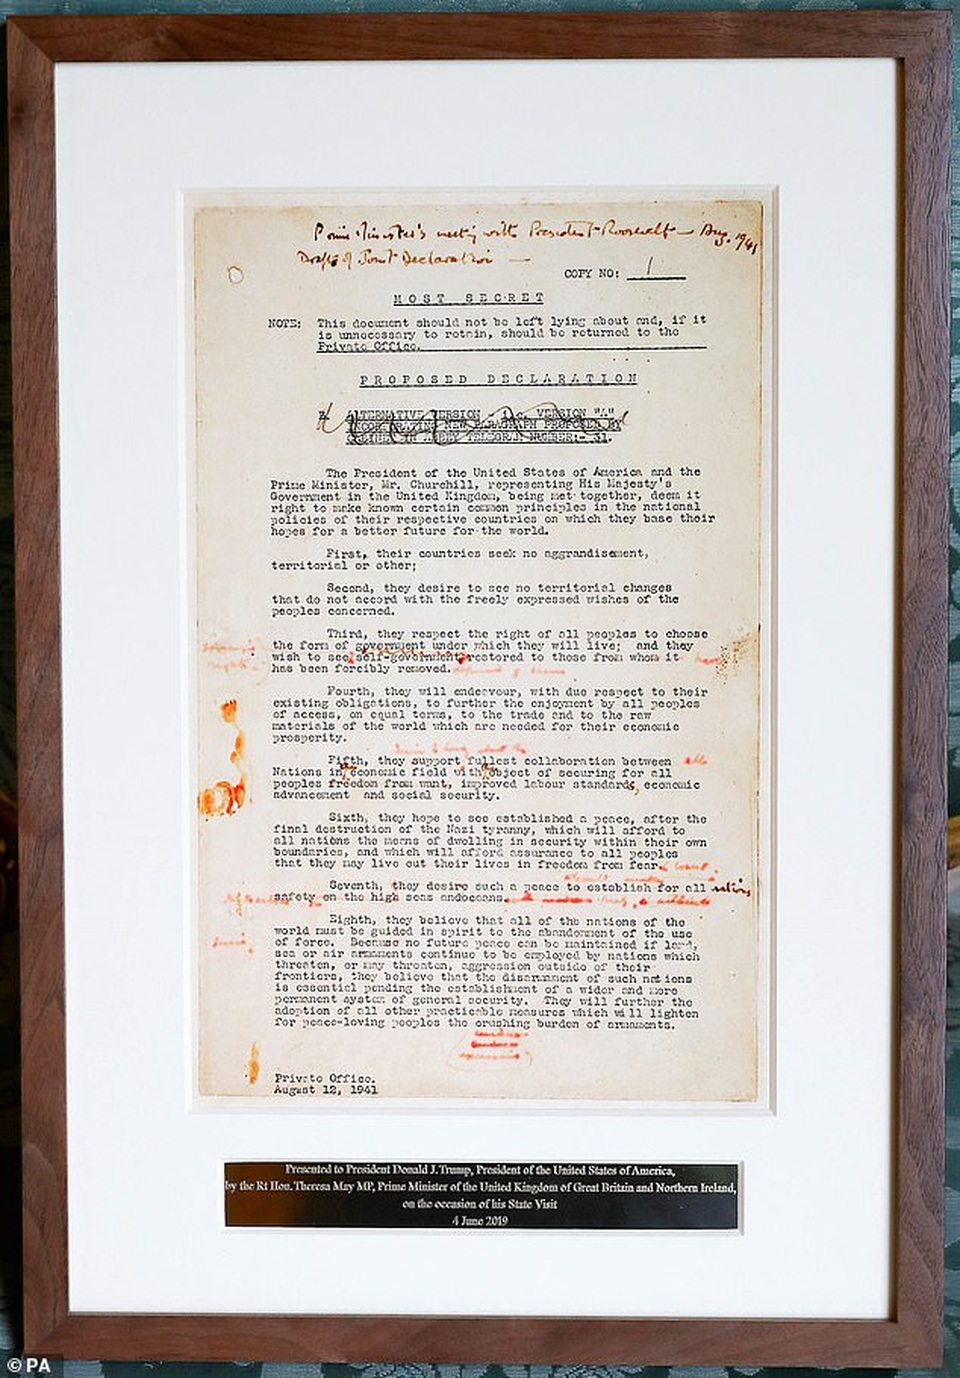 Prime Minister's meeting with President Roosevelt — Aug. 1941
Draft of Joint Declaration —
COPY NO: 1
MOST SECRET
NOTE: This document should not be left lying about and, if it
is unnecessary to retain, should be returned to the
Private Office.
PROPOSED DECLARATION
ALTERNATIVE VERSION - i.e. VERSION "A"
INCORPORATING NEW PARAGRAPH PROPOSED BY
CABINET IN ABBEY TELEGRAM NUMBER:- 31.
The President of the United States of America and the
Prime Minister, Mr. Churchill, representing His Majesty's
Government in the United Kingdom, being met together, deem it
right to make known certain common principles in the national
policies of their respective countries on which they base their
hopes for a better future for the world.
First, their countries seek no aggrandisement,
territorial or other;
Second, they desire to see no territorial changes
that do not accord with the freely expressed wishes of the
peoples concerned.
Third, they respect the right of all peoples to choose
the form of government under which they will live; and they
sovereign rights &
wish to see self-government restored to those from whom it have
has been forcibly removed. deprived of them
Fourth, they will endeavour, with due respect to their
existing obligations, to further the enjoyment by all peoples
of access, on equal terms, to the trade and to the raw
materials of the world which are needed for their economic
prosperity.
Fifth, they support fullest collaboration between all
Nations in economic field with object of securing for all
peoples freedom from want, improved labour standards, economic
advancement and social security.
Sixth, they hope to see established a peace, after the
final destruction of the Nazi tyranny, which will afford to
all nations the means of dwelling in security within their own
boundaries, and which will afford assurance to all peoples
that they may live out their lives in freedom from fear & want.
Seventh, they desire such a peace to establish for all nations
safety on the high seas and oceans.
Eighth, they believe that all of the nations of the
world must be guided in spirit to the abandonment of the use
of force. Because no future peace can be maintained if land,
sea or air armaments continue to be employed by nations which
threaten, or may threaten, aggression outside of their
frontiers, they believe that the disarmament of such nations
is essential pending the establishment of a wider and more
permanent system of general security. They will further the
adoption of all other practicable measures which will lighten
for peace-loving peoples the crushing burden of armaments.
Private Office.
August 12, 1941
Presented to President Donald J. Trump, President of the United States of America,
by the Rt Hon. Theresa May MP, Prime Minister of the United Kingdom of Great Britain and Northern Ireland,
on the occasion of his State Visit
4 June 2019
© PA